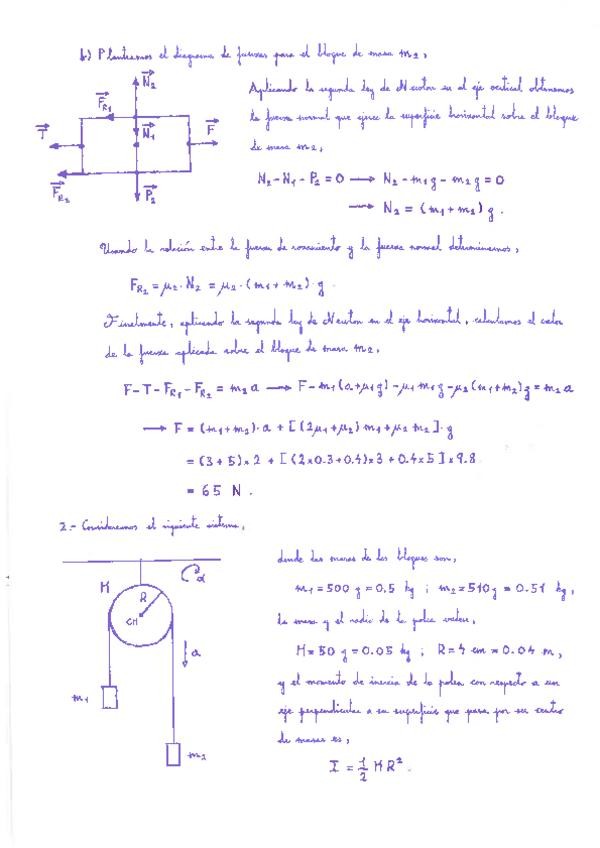 b) Planteamos el diagrama de fuerzas para el bloque de masa m2,
N2
Aplicando la segunda ley de Newton en el eje vertical obtenemos
FR1
la fuerza normal que ejerce la superficie horizontal sobre el bloque
T
N1
F
de masa m2,
FR2
P2
N2 - N1 - P2 = 0 → N2 - m1g - m2g = 0
→ N2 = (m1 + m2) g.
Usando la relación entre la fuerza de rozamiento y la fuerza normal determinamos,
FR2 = μ2 · N2 = μ2 · (m1 + m2) · g
Finalmente, aplicando la segunda ley de Newton en el eje horizontal, calculamos el valor
de la fuerza aplicada sobre el bloque de masa m2,
F - T - FR1 - FR2 = m2 a → F - m1(a + μ1g) - μ1m1g - μ2(m1 + m2)g = m2 a
→ F = (m1 + m2) · a + [(2μ1 + μ2) m1 + μ2 m2] · g
= (3 + 5) × 2 + [(2 × 0.3 + 0.4) × 3 + 0.4 × 5] × 9.8
= 65 N.
2.- Consideramos el siguiente sistema,
donde las masas de los bloques son,
M
R
α
m1 = 500 g = 0.5 kg ; m2 = 510 g = 0.51 kg,
CM
la masa y el radio de la polea valen,
a
M = 50 g = 0.05 kg ; R = 4 cm = 0.04 m,
m1
y el momento de inercia de la polea con respecto a un
eje perpendicular a su superficie que pasa por su centro
de masas es,
m2
I = 1/2 M R²